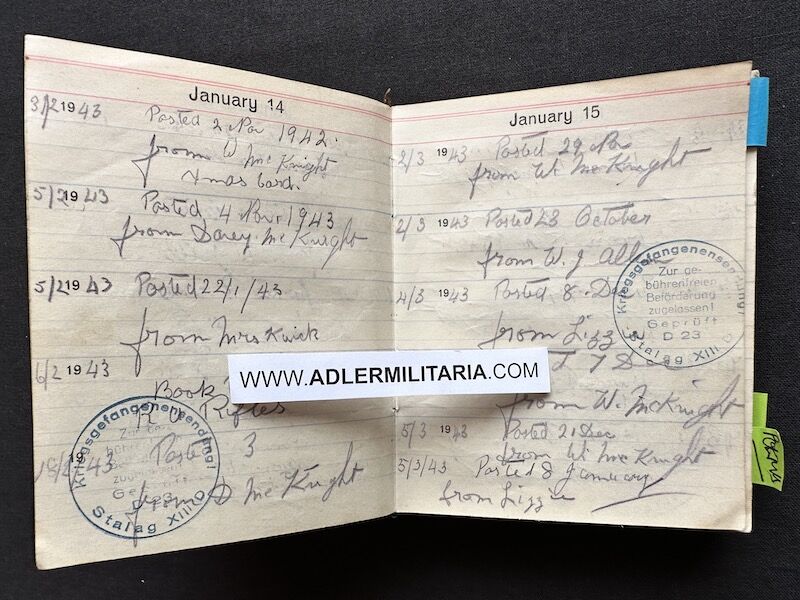 January 14
3/2 1943 Posted 2 Nov 1942.
from W McKnight
Xmas Card.
5/2 1943 Posted 4 Nov. 1943
from Dorey McKnight
5/2 1943 Posted 22/1/43
from Mrs Kwick
6/2 1943
Book
R U Rifles
18/2 1943 Posted 3
from D McKnight
Kriegsgefangenensendung!
Stalag XIII D
January 15
2/3 1943 Posted 29 Nov
from W. McKnight
2/3 1943 Posted 23 October
from W. J Allen
4/3 1943 Posted 8 Dec
from Lizzie
7 Dec
from W. McKnight
5/3 1943 Posted 21 Dec
from W McKnight
5/3/43 Posted 8 January
from Lizzie
Kriegsgefangenensendung!
Zur ge-
bührenfreien
Beförderung
zugelassen!
Geprüft
D 23
Stalag XIII D
WWW.ADLERMILITARIA.COM
POEMS